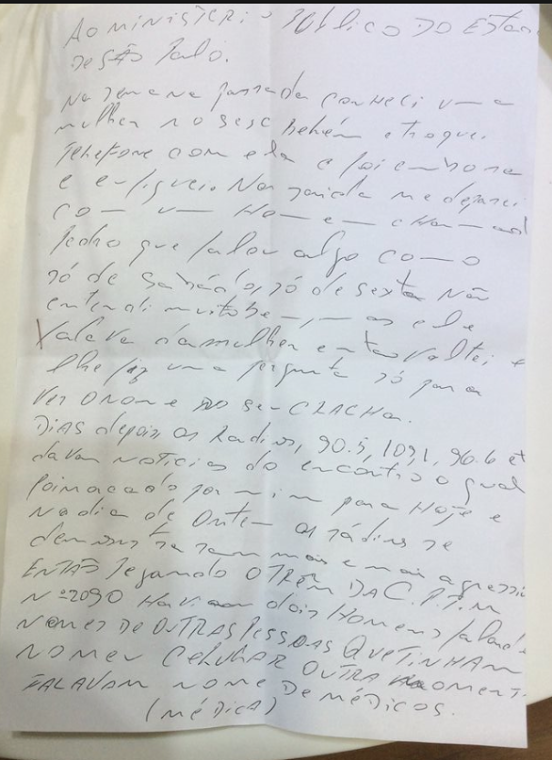 AO MINISTÉRIO PÚBLICO DO ESTADO
DE SÃO PAULO.
NA SEMANA passada conheci uma
mulher no sesc Belém e troquei
Telefone com ela e foi embora
e eu fiquei. Na saída me deparei
com um Homem chamad
Pedro que falou algo como
só de sábado, só de sexta Não
entendi muito bem, mas ele
falava da mulher então voltei e
lhe fiz uma pergunta só para
VER O NOME NO SEU CRACHA.
DIAS depois, as Radios, 90.5, 109,1, 96.6 et
davam noticias do encontro o qual
foi marcado por mim para Hoje e
Na dia de Ontem as rádios se
demonstraram mais e mais agressi
ENTÃO Pegando O TREM DA C.P.T.M
Nº 2090 Haviam dois Homens faland
NOMES DE OUTRAS PESSOAS QUE TINHAM
NO MEU CELULAR OUTRA MOMENT
FALAVAM NOME DE MÉDICOS.
(MÉDICA)